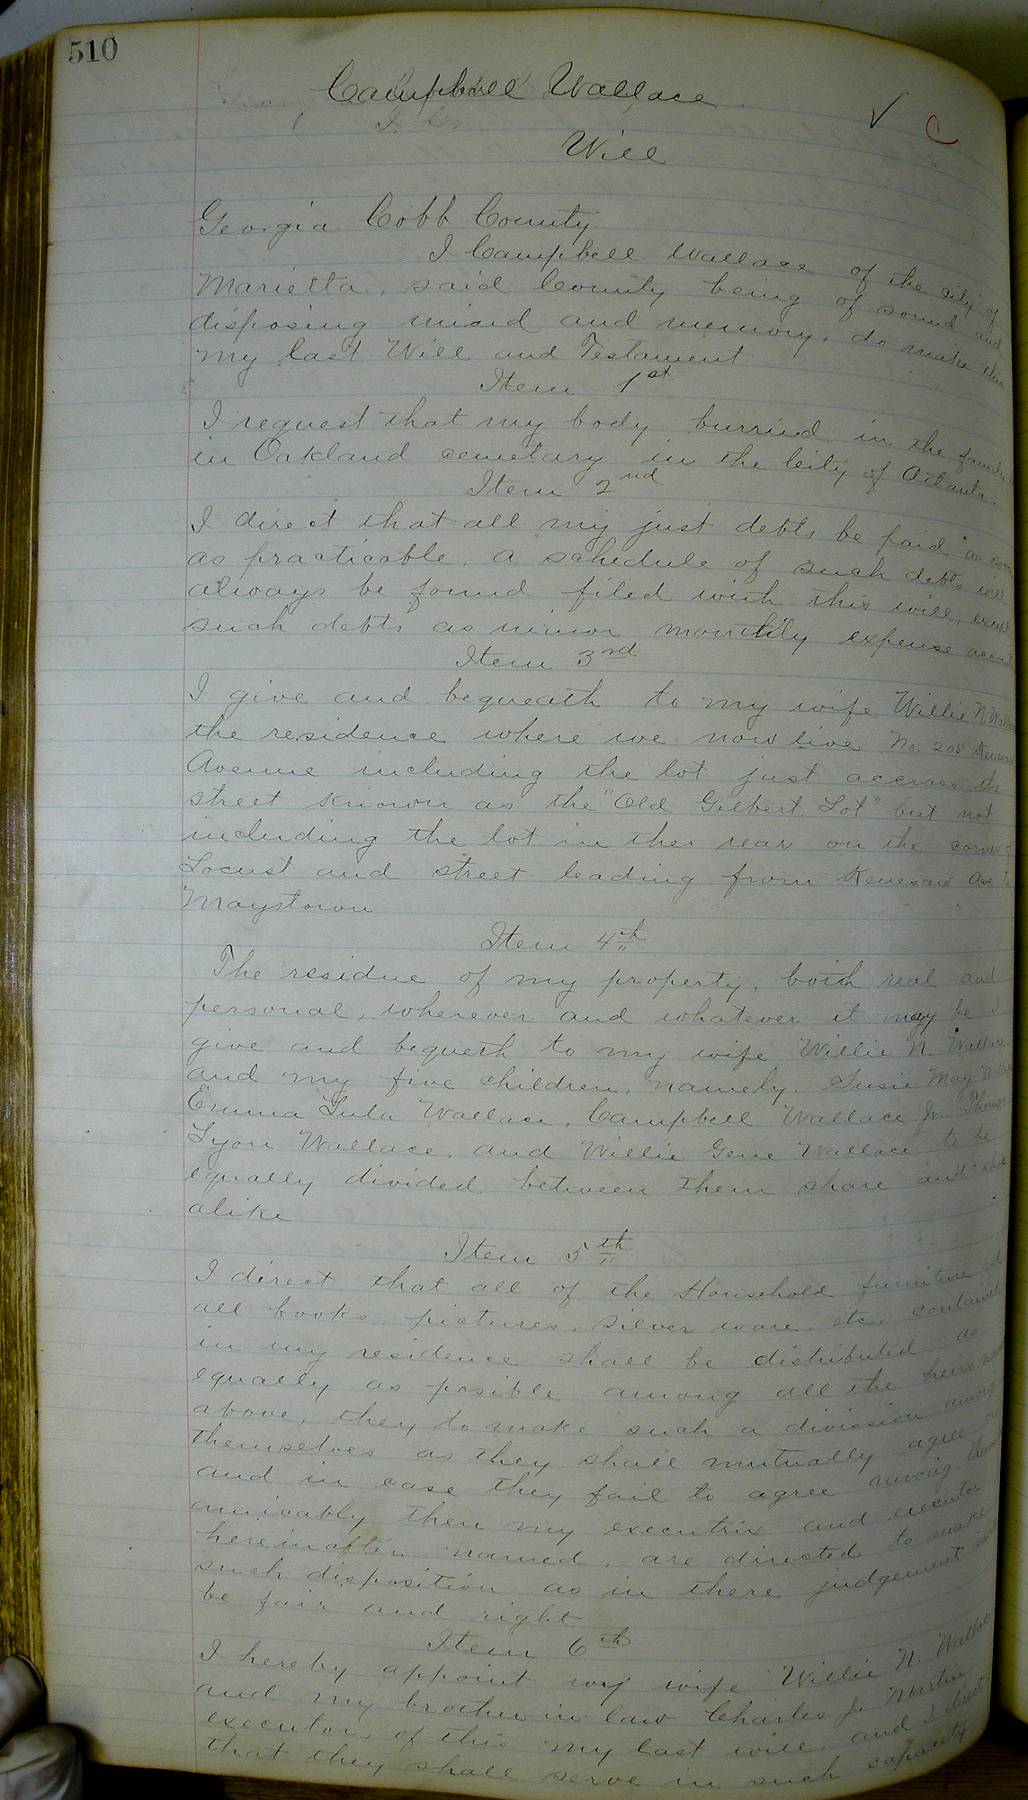 510
Campbell Wallace
Will
Georgia Cobb County
I Campbell Wallace of the city of
Marietta, said County being of sound and
disposing mind and memory, do make this
my last Will and Testament
Item 1st
I request that my body burried in the family
in Oakland cemetary in the City of Atlanta.
Item 2nd
I direct that all my just debts be paid as soon
as practicable, a schedule of such debts will
always be found filed with this will, except
such debts as minor monthly expense accounts
Item 3rd
I give and bequeath to my wife Willie N. Wallace
the residence where we now live No. 205 Kenesaw
Avenue including the lot just accross the
street known as the "Old Gilbert Lot" but not
including the lot in ther rear on the corner of
Locust and street leading from Kenesaw Ave To
Maystown
Item 4th
The residue of my property, both real and
personal, wherever and whatever it may be I
give and bequeth to my wife Willie N. Wallace
and my five children, namely. Susie May Wallace
Emma Lula Wallace, Campbell Wallace Jr. Thomas
Lyon Wallace, and Willie Gene Wallace to be
equally divided between them share and share
alike
Item 5th
I direct that all of the Household furniture and
all books pictures, silver ware etc. contained
in my residence shall be distributed as
equally as posible among all the heirs named
above, they to make such a division among
themselves as they shall mutually agree
and in case they fail to agree among them
amicably then my executrix and executor
hereinafter named, are directed to make
such disposition as in there judgement
be fair and right
Item 6th
I hereby appoint my wife Willie N. Wallace
and my brother in law Charles J. Martin
executor, of this my last will and I direct
that they shall serve in such capacity